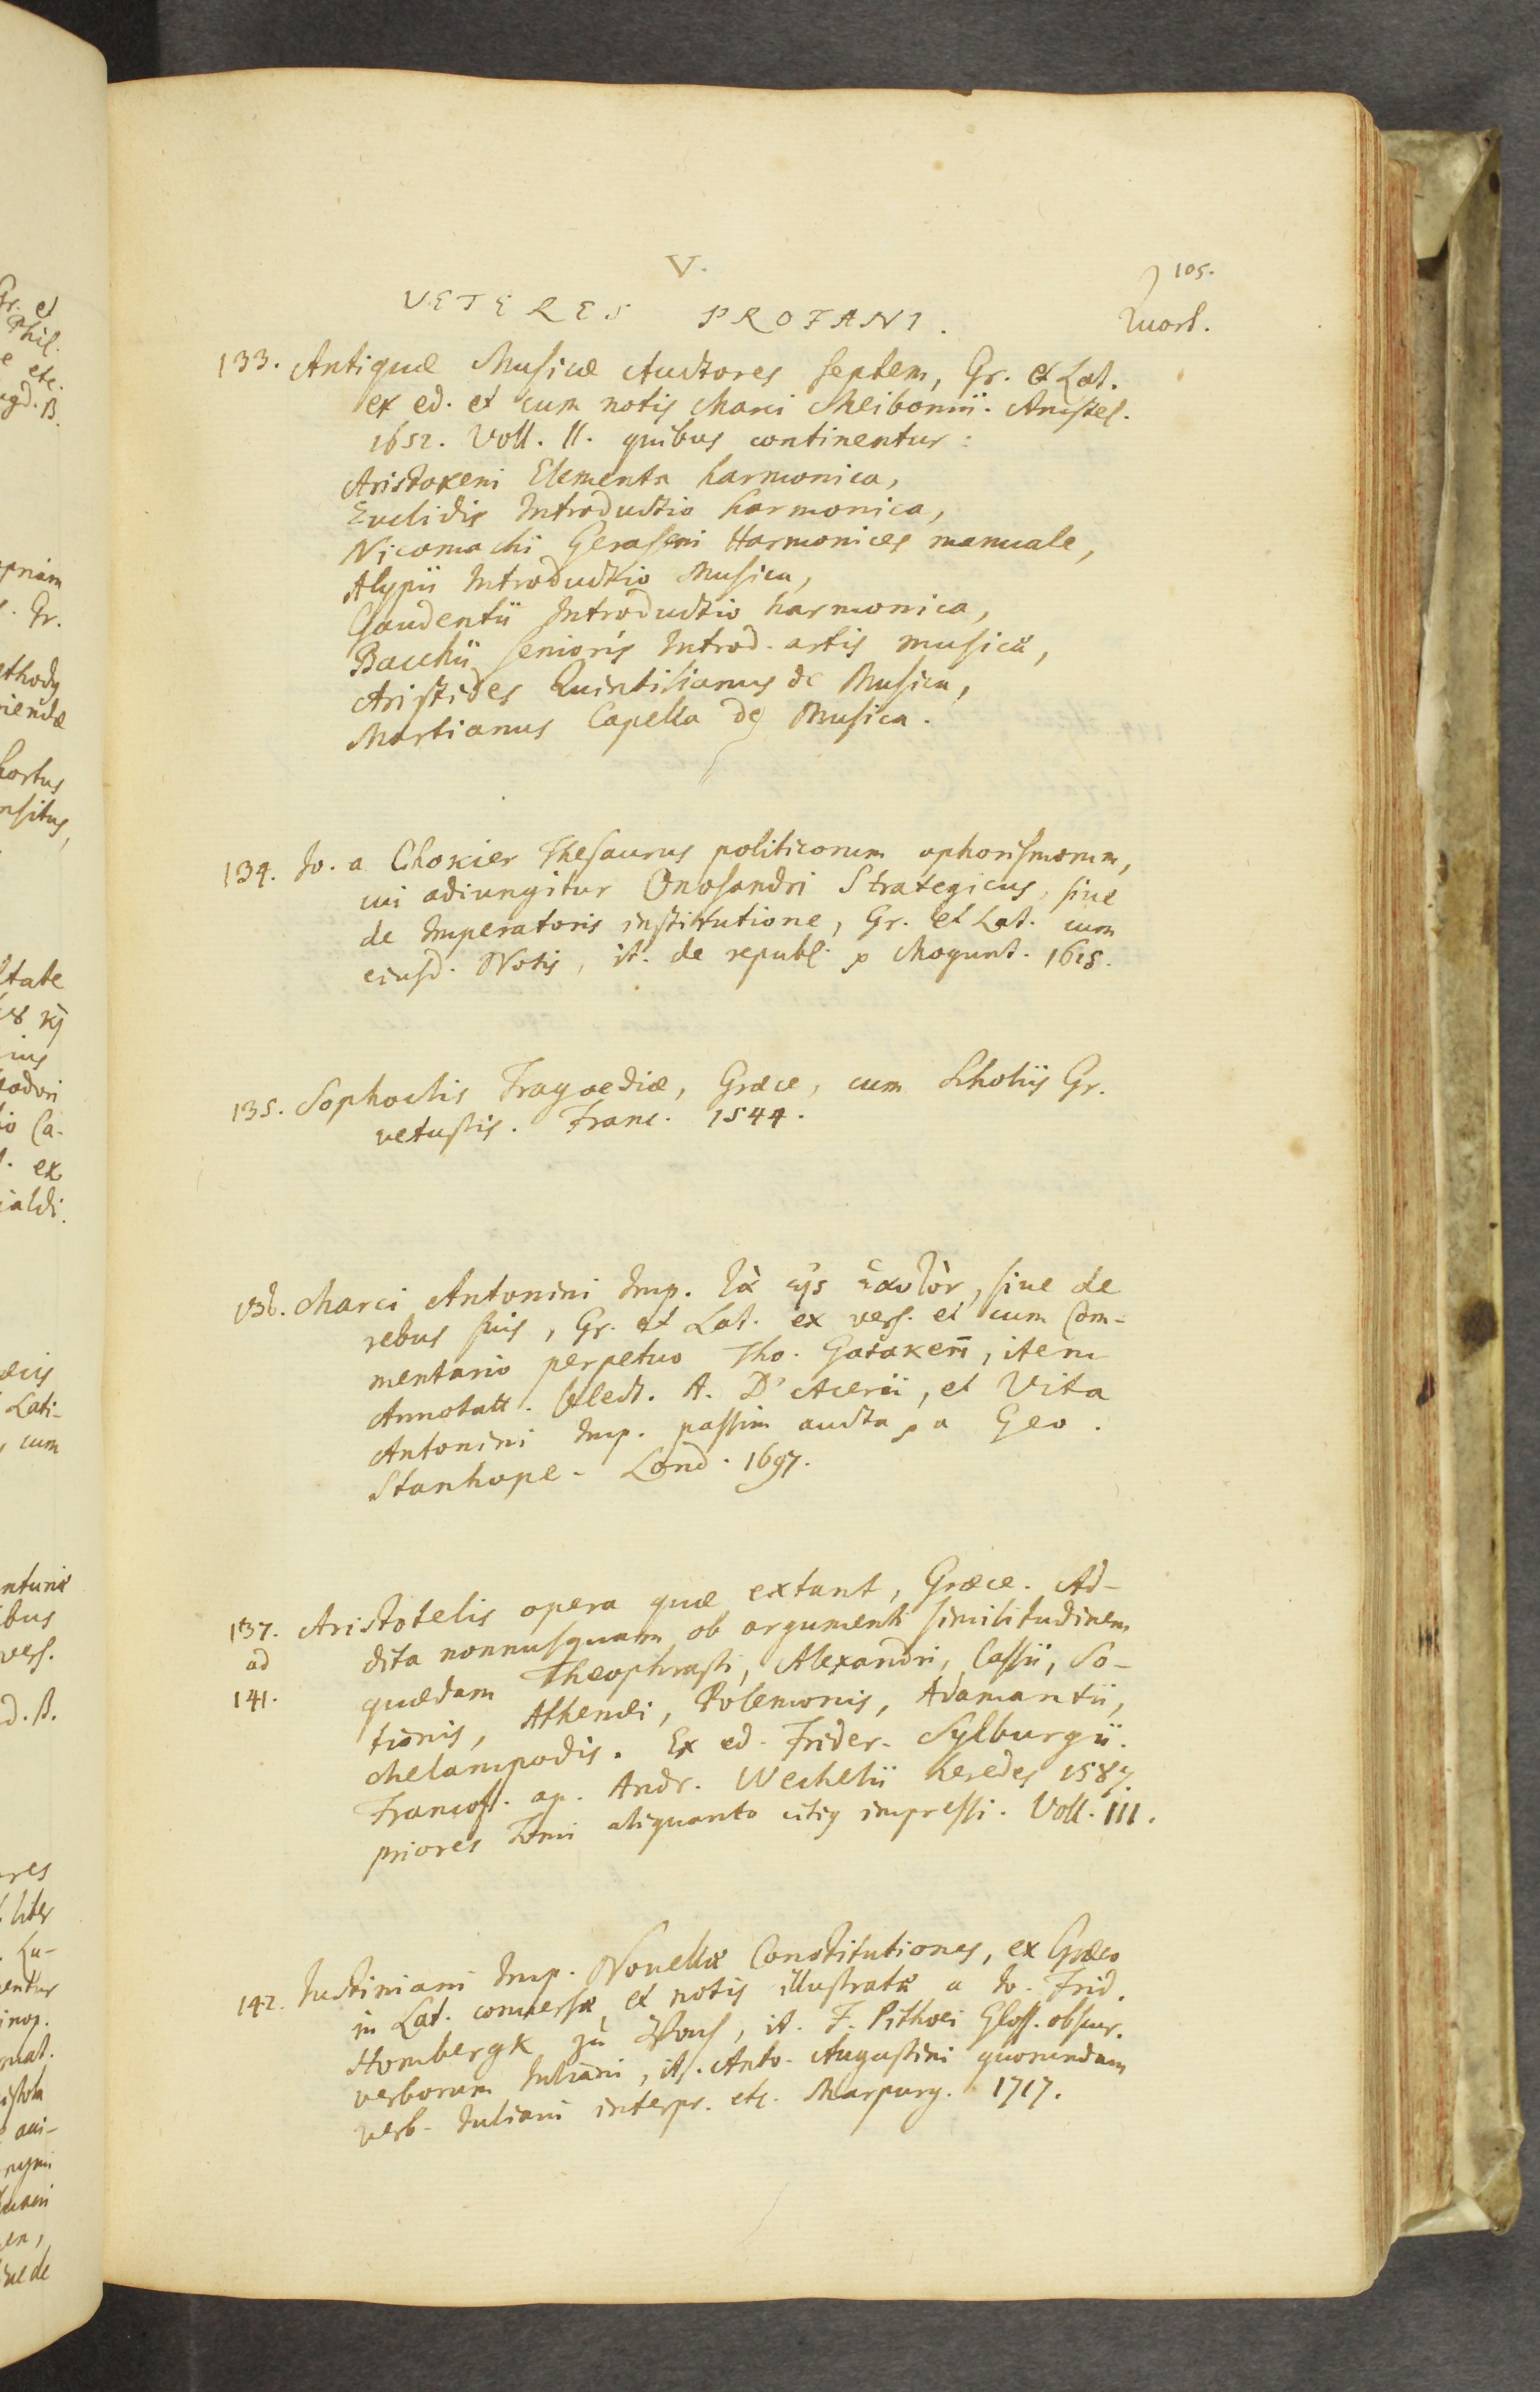 V.
105.
VETERES PROFANI.
Quart.
133. Antiquæ Musicæ Auctores septem, Gr. et Lat.
ex ed. et cum notis Marci Meibomii. Amstel.
1652. Voll. II. quibus continentur:
Aristoxeni Elementa harmonica,
Euclidis Introductio harmonica,
Nicomachi Geraseni Harmonices manuale,
Alypii Introductio Musica,
Gaudentii Introductio harmonica,
Bacchii senioris Introd. artis musicæ,
Aristides Quintilianus de Musica,
Martianus Capella de Musica.
134. Io. a Chokier Thesaurus politicorum aphorismorum,
cui adiungitur Onosandri Strategicus, siue
de Imperatoris institutione, Gr. et Lat. cum
eiusd. Notis, it. de republ. Mogunt. 1615.
135. Sophoclis Tragoediæ, Græce, cum Scholiis Gr.
vetustis. Franc. 1544.
136. Marci Antonini Imp. τὰ εἰς ἑαυτὸν, siue de
rebus suis, Gr. et Lat. ex vers. et cum Com-
mentario perpetuo Tho. Gatakeri, item
Annotatt. select. A. D'Acerii, et Vita
Antonini Imp. passim aucta, a Geo.
Stanhope. Lond. 1697.
137. Aristotelis opera quæ extant, Græce. Ad-
ad dita nonnusquam ob argumenti similitudinem
141. quædam Theophrasti, Alexandri, Cassii, So-
tionis, Athenæi, Polemonis, Adamantii,
Melampodis. Ex ed. Frider. Sylburgii.
Francof. ap. Andr. Wechelii heredes 1587.
priores Tomi aliquanto citiq impressi. Voll. III.
142. Iustiniani Imp. Nouellæ Constitutiones, ex Græco
in Lat. conuersæ et notis illustratæ a Io. Frid.
Hombergk zu Vach, it. F. Pithoei Gloss. obscur.
verborum Iuliani, it. Anto. Augustini quorundam
verb. Iuliani interpr. etc. Marpurg. 1717.